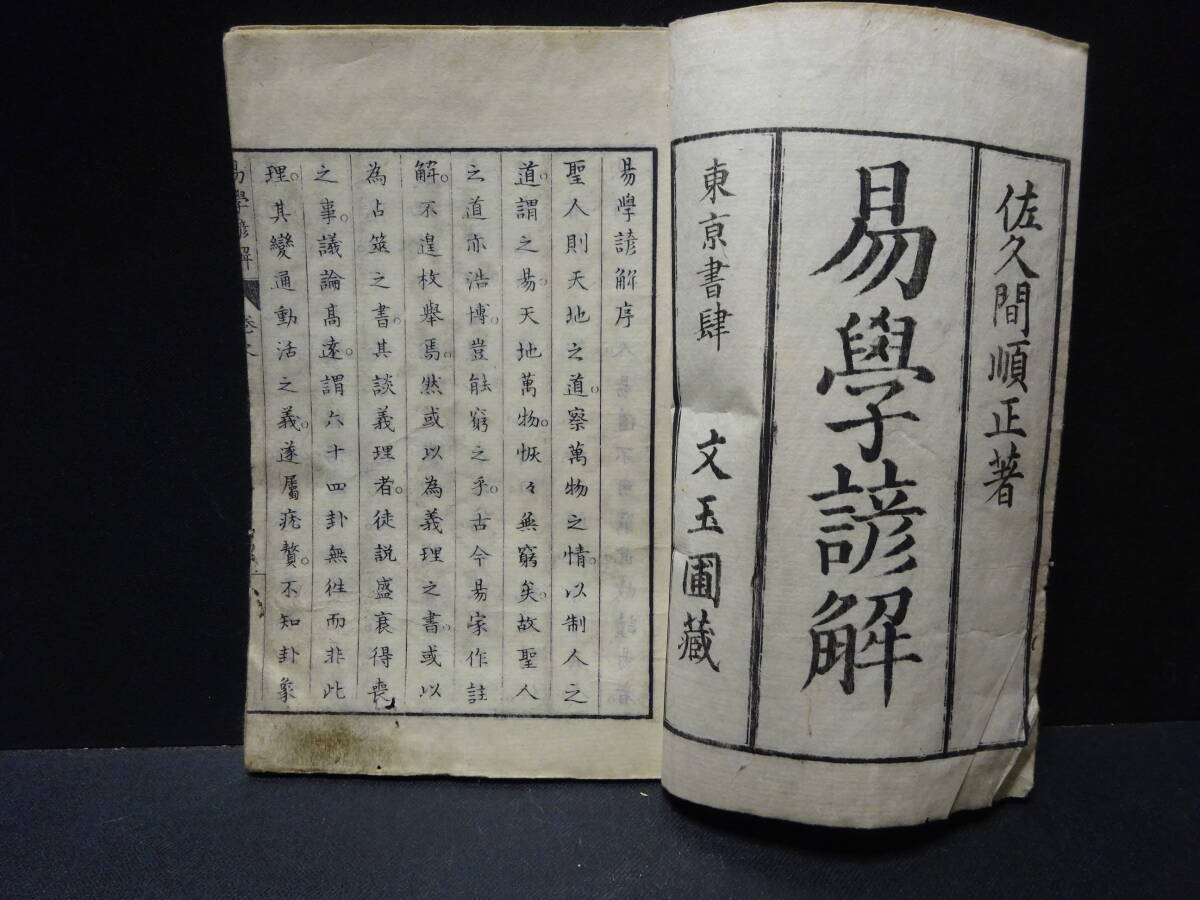 佐久間順正著
易學諺解
東京書肆 文玉圃藏
易學諺解序
聖人則天地之道。察萬物之情。以制人之
道。謂之易。天地萬物。恢々無窮矣。故聖人
之道亦浩博。豈能窮之乎。古今易家作註
解。不遑枚舉焉。然或以為義理之書。或以
為占筮之書。其談義理者。徒説盛衰得喪
之事。議論高遠。謂六十四卦無往而非此
理。其變通動活之義。遂屬疣贅。不知卦象
易學諺解